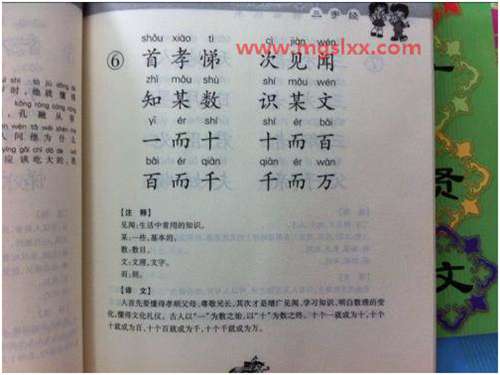 三字经
www.mgslxx.com
shǒu xiào tì cì jiàn wén
⑥ 首孝悌 次见闻
zhī mǒu shù shí mǒu wén
知某数 识某文
yī ér shí shí ér bǎi
一而十 十而百
bǎi ér qiān qiān ér wàn
百而千 千而万
【注 释】
见闻:生活中常用的知识。
某:一些,基本的。
数:数目。
文:文理,文字。
而:则。
【译 文】
人首先要懂得孝顺父母、尊敬兄长,其次才是增广见闻,学习知识,明白数理的变
化,懂得文化礼仪。古人以“一”为数之始,以“十”为数之终。十个一就成为十,十个
十就成为百,十个百就成为千,十个千就成为万。
贤
文